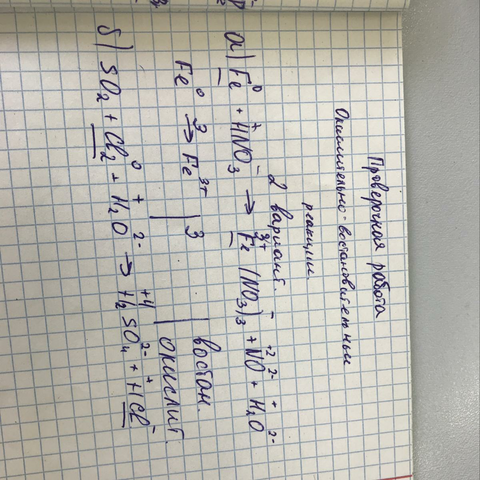 Проверочная работа
Окислительно-востановительныи
реакции.
2 вариант.
а) Fe⁰ + HNO₃ → Fe³⁺(NO₃)₃ + NO + H₂O
Fe⁰ →³ Fe³⁺ | 3 | востан.
| окислит.
б) SO₂ + Cl₂⁰ + H₂O → H₂SO₄ + HCl⁻